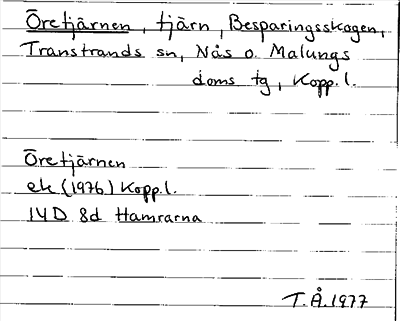 Öretjärnen, tjärn, Besparingsskogen,
Transtrands sn, Nås o. Malungs
doms tg, Kopp. l.
Öretjärnen
ek (1976) Kopp.l.
14D 8d Hamrarna
T.Å.1977